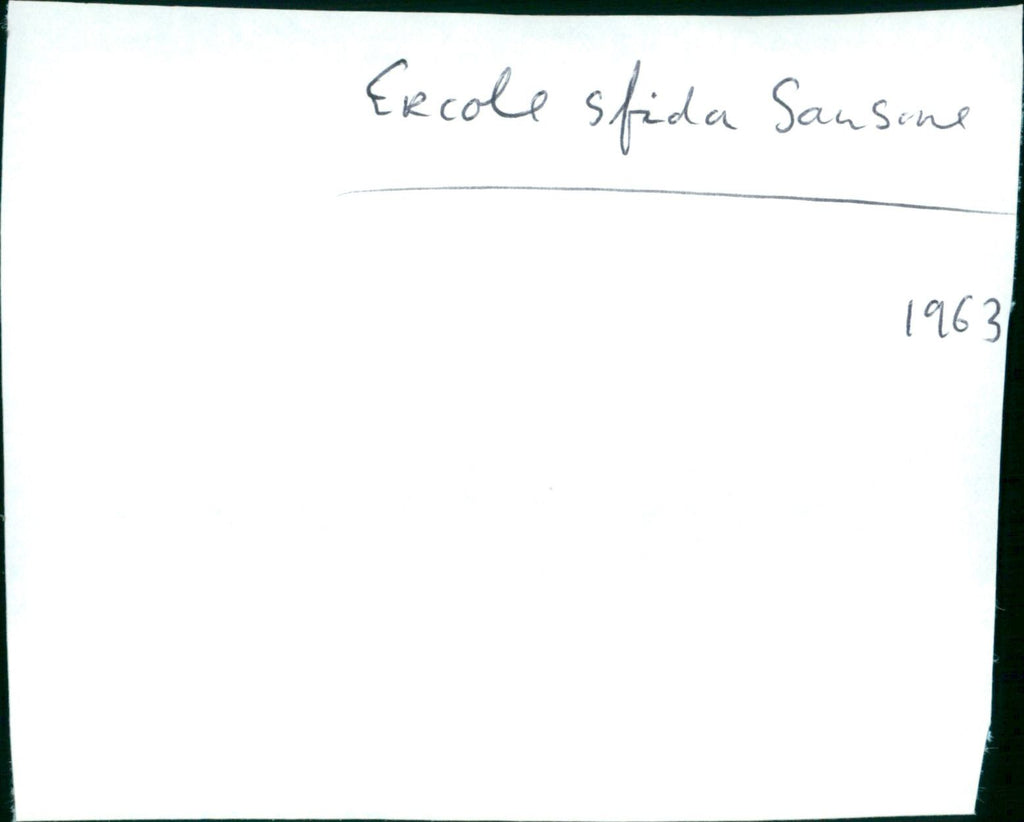 Ercole sfida Sansone
1963